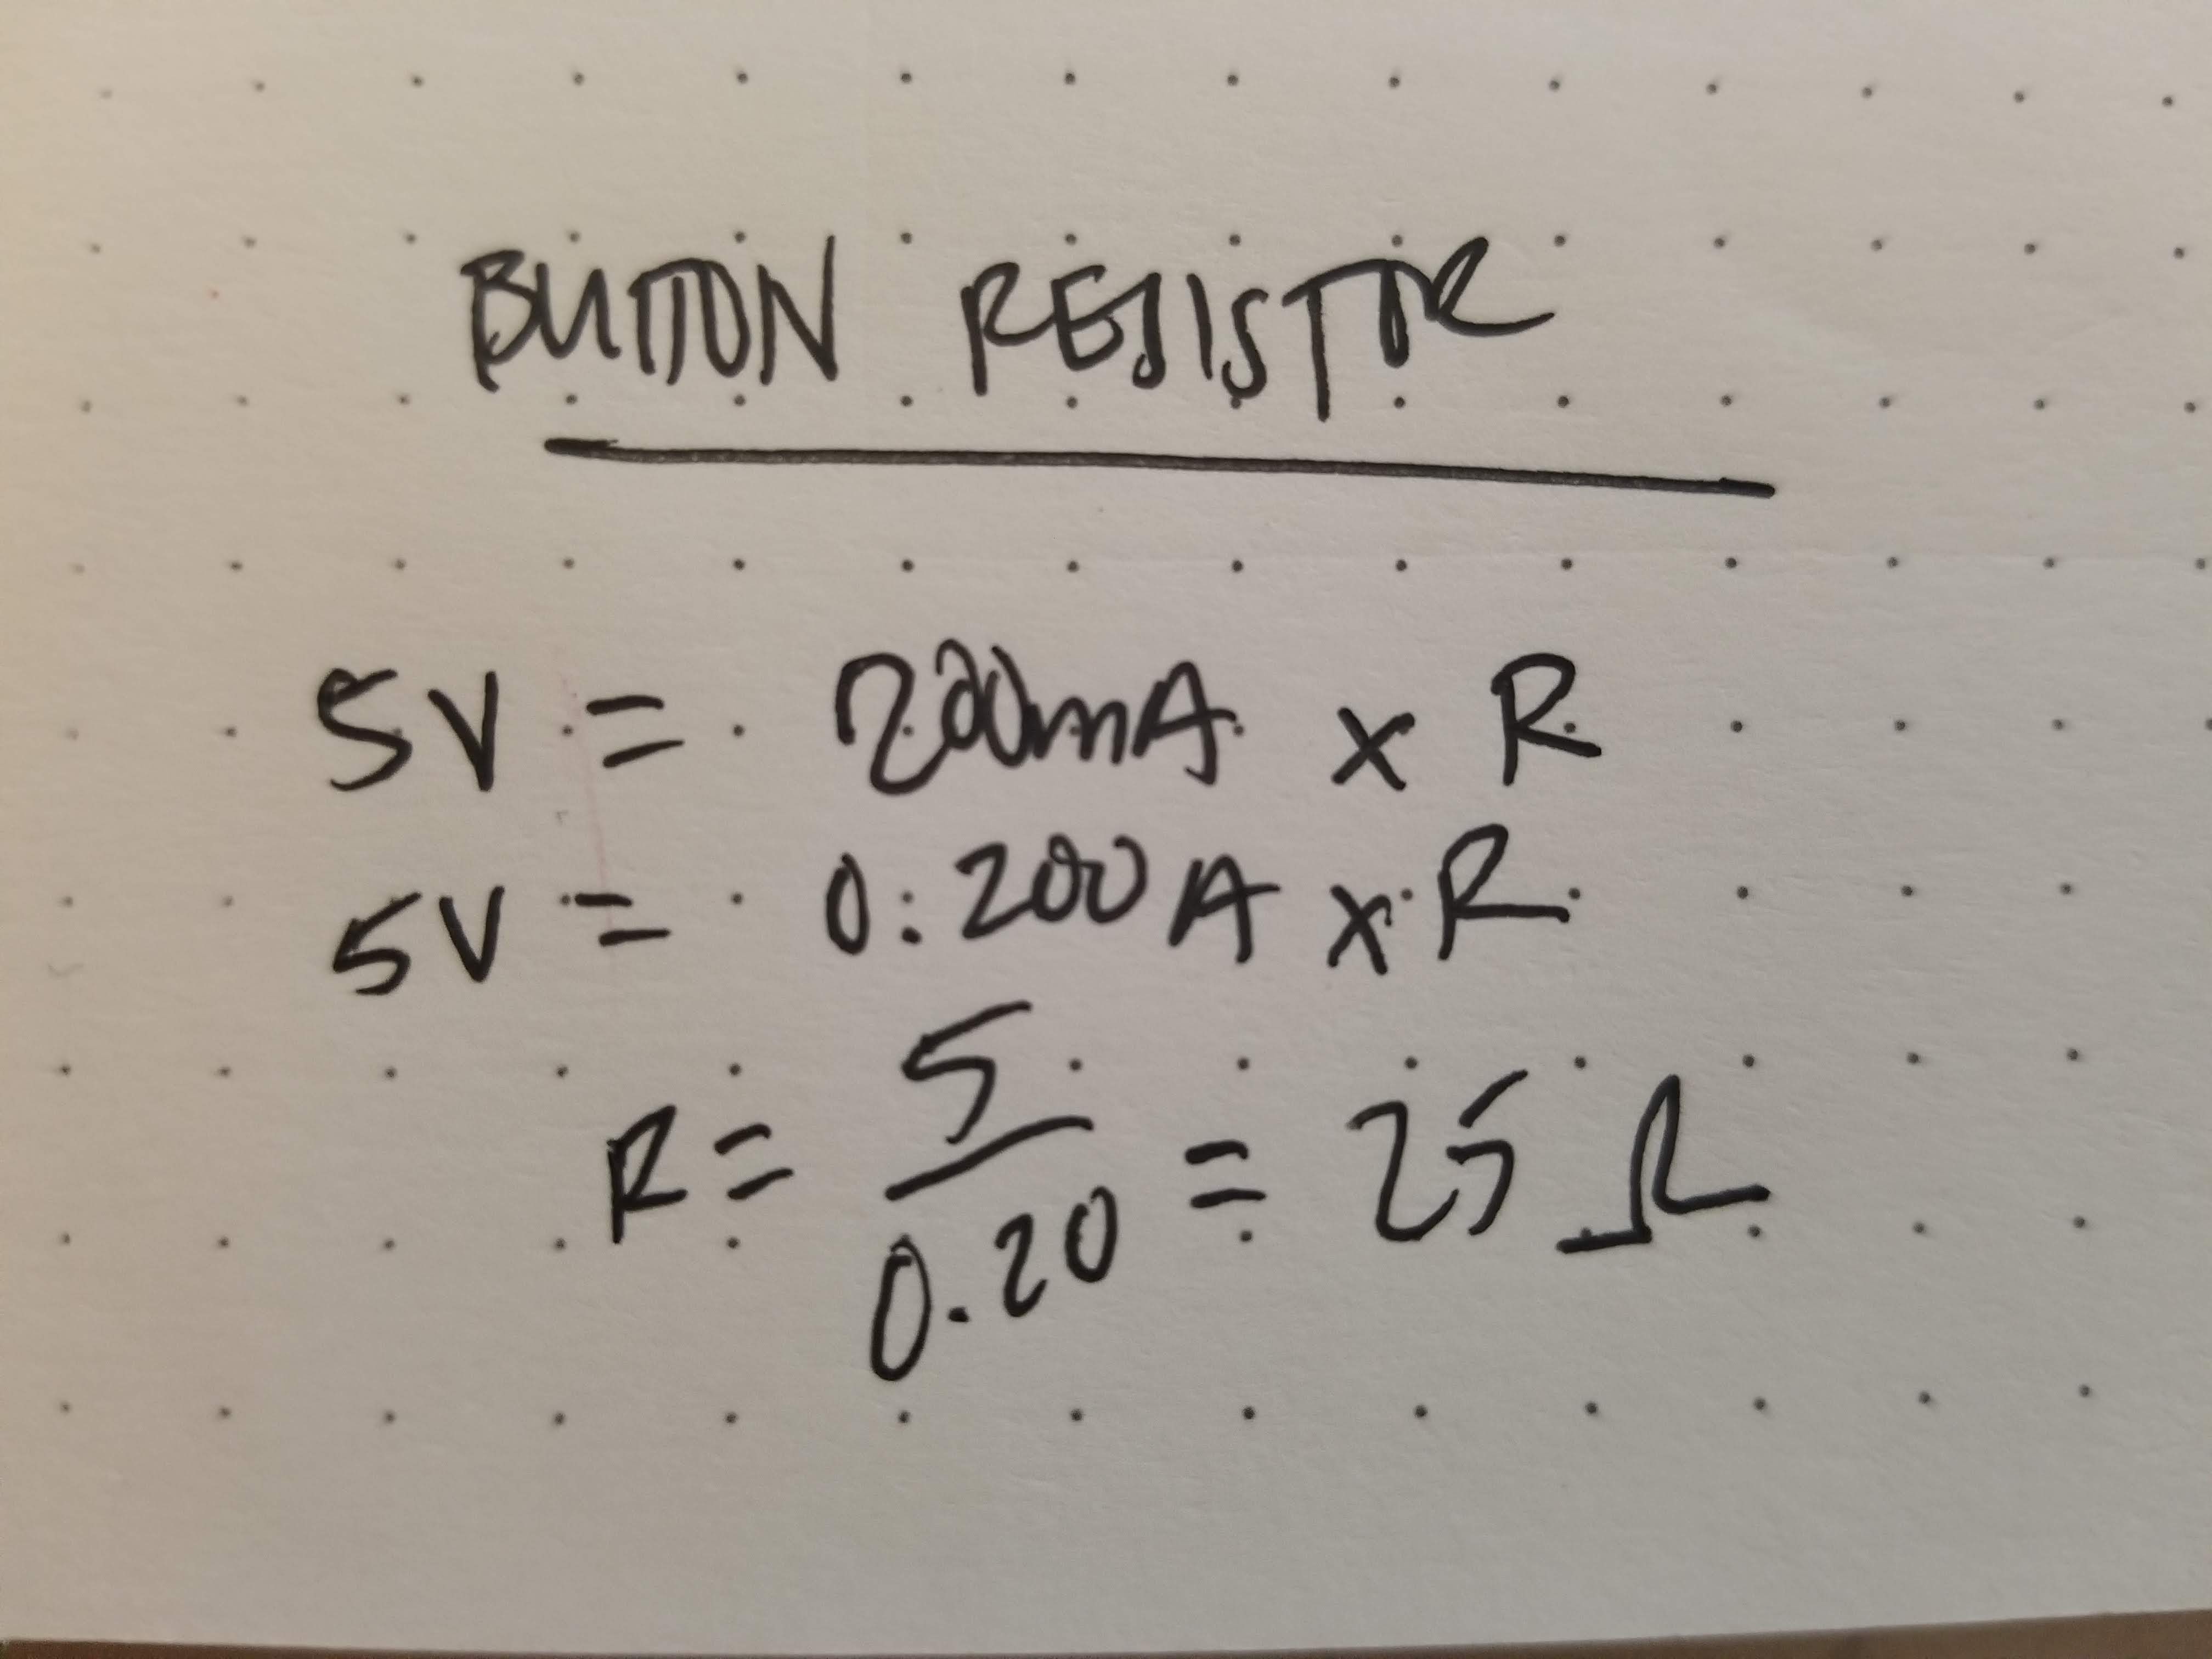 BUTTON RESISTOR
5V = 200mA x R
5V = 0.200A x R
R = 5/0.20 = 25 Ω